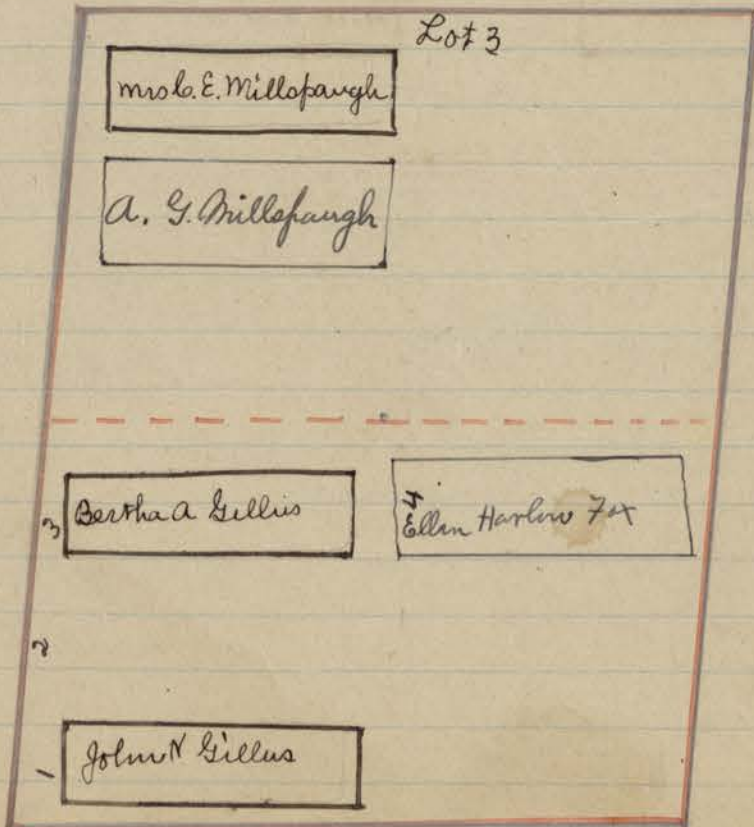 Lot 3
Mrs C. E. Millspaugh
A. G. Millspaugh
3 Bertha A Gillis
4
Ellen Harlow Fox
2
1 John N Gillis